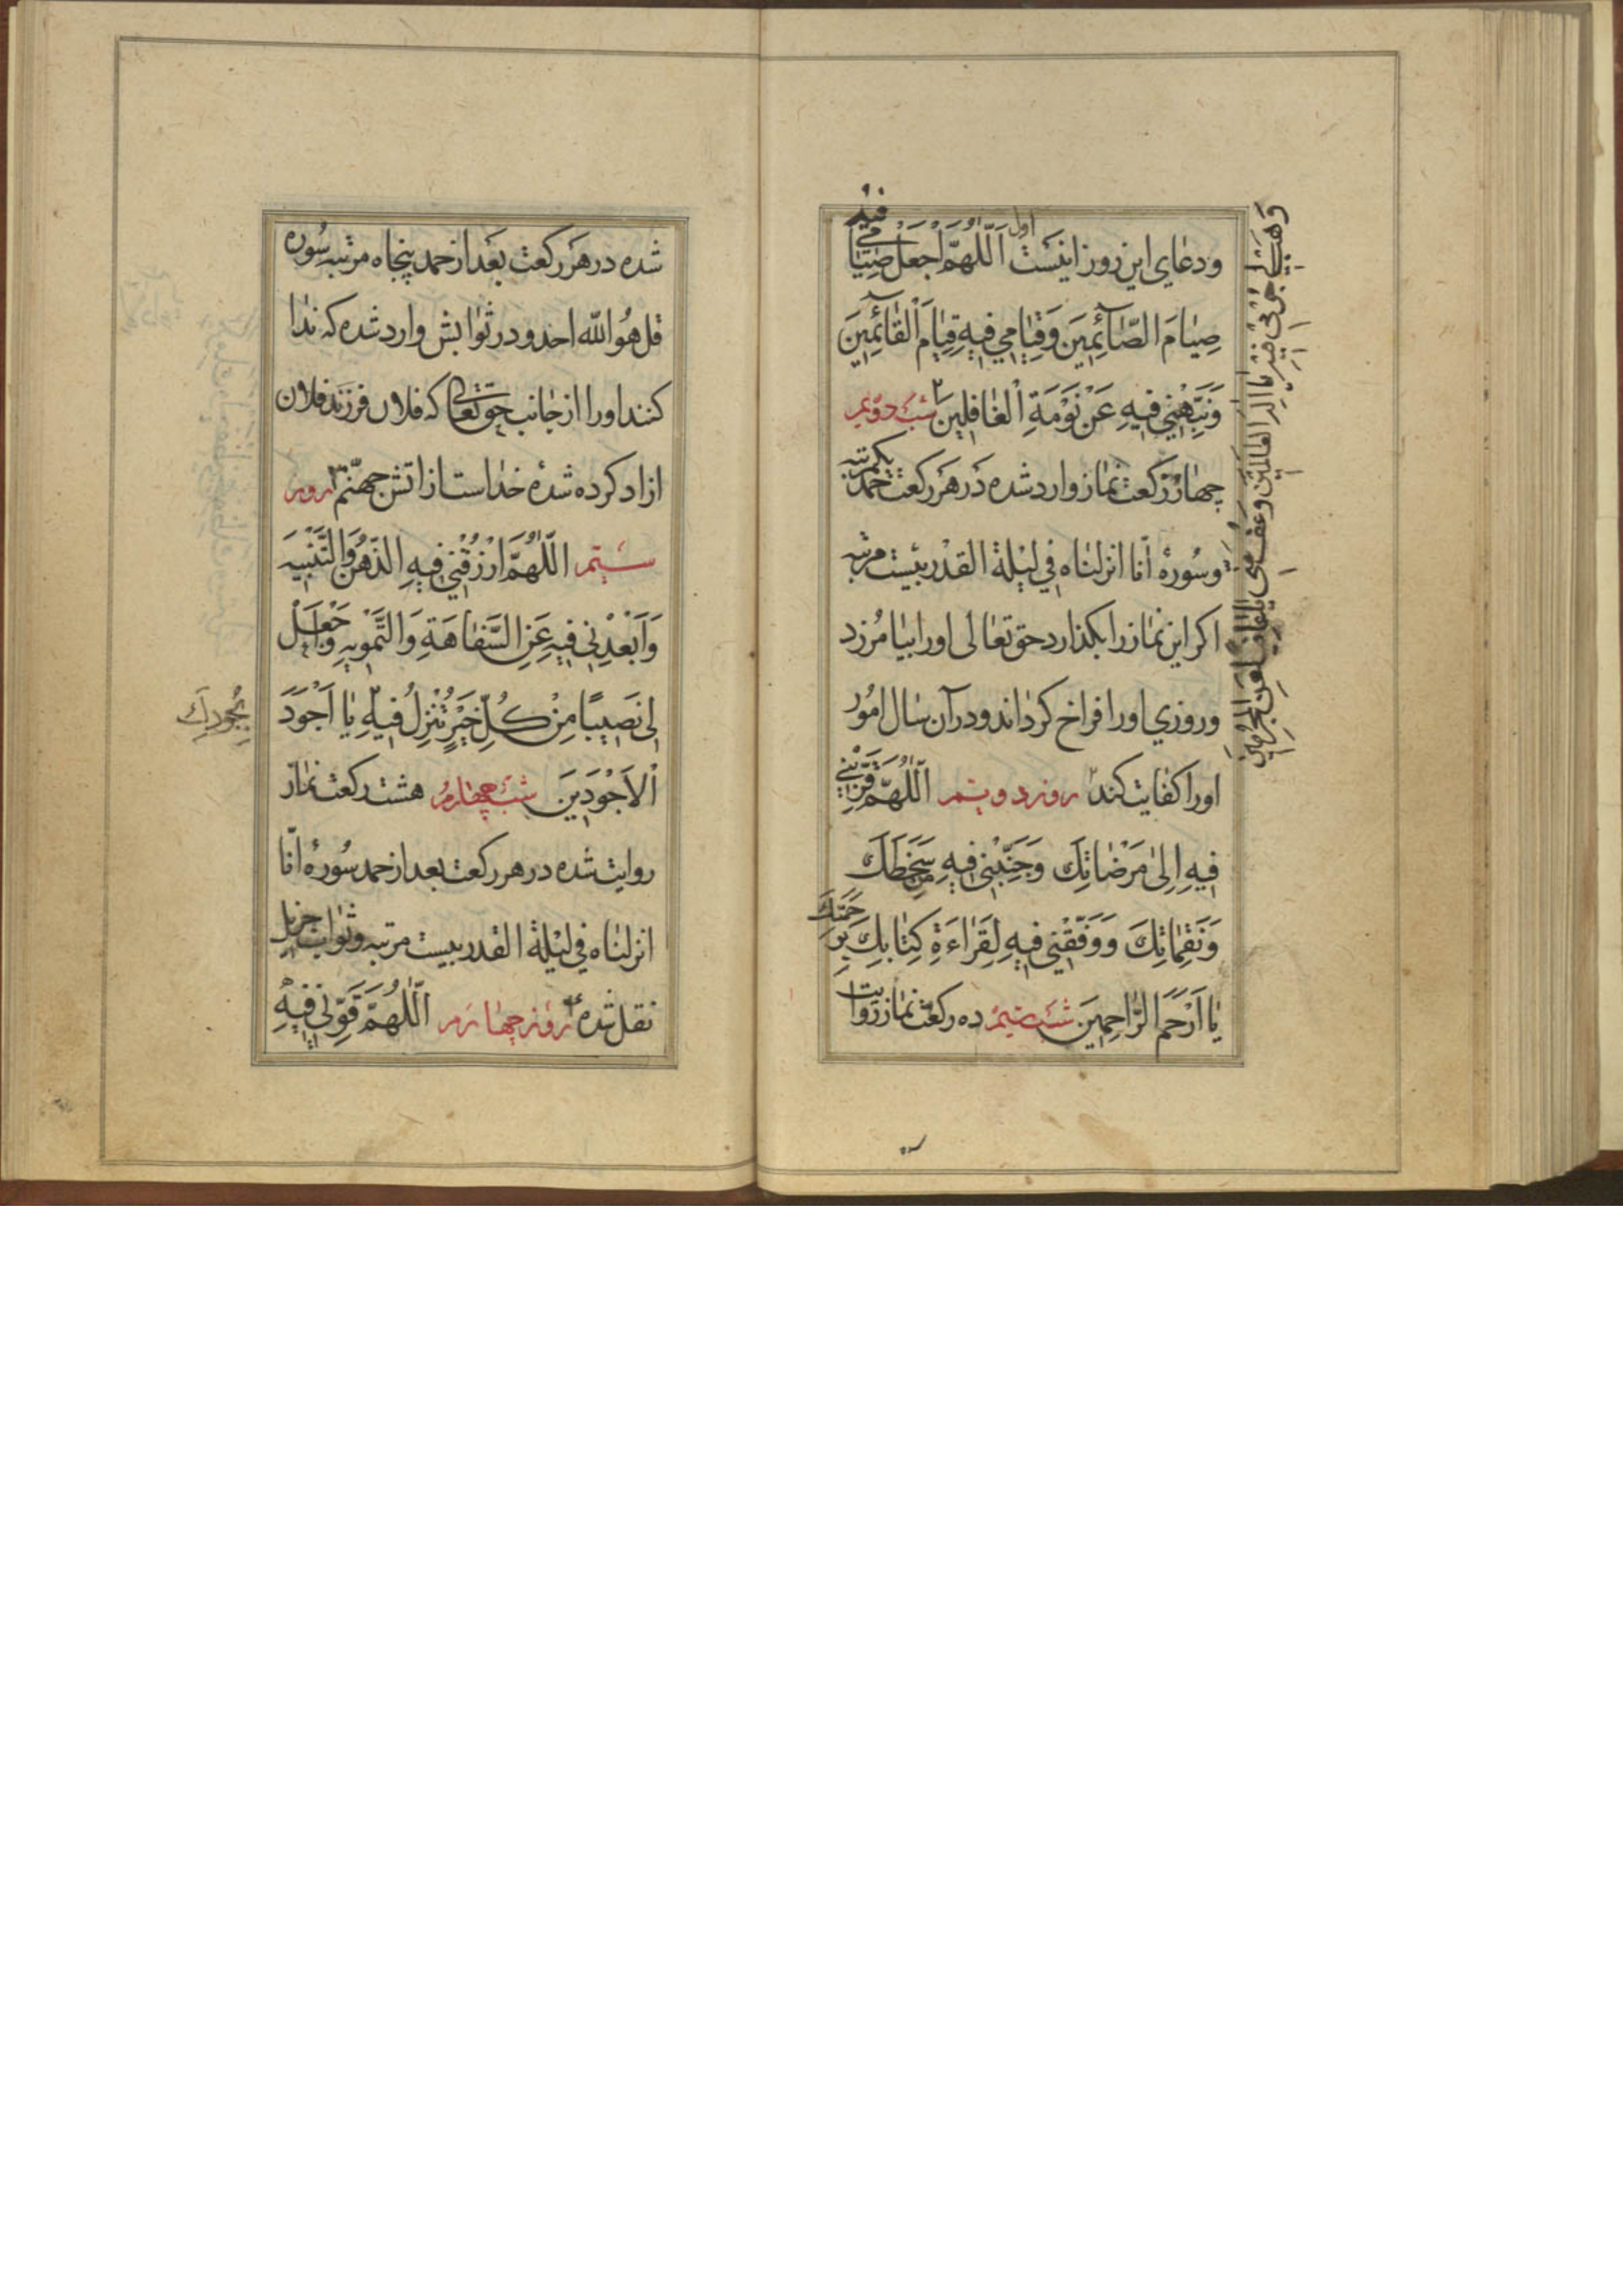 ودعاي اين روز اينست اول اَللّٰهُمَّ اجْعَلْ صِيٰامي فيهِ
صِيٰامَ الصّٰآئِمِينَ وَقِيٰامِي فِيهِ قِيٰامَ الْقٰائِمِينَ
وَنَبِّهْنِي فِيهِ عَنْ نَوْمَةِ الْغٰافِلِينَ ٢ شب دويم
چهار ركعت نماز وارد شده در هر ركعت حمد يكمرتبه
وسُورهٔ انّا انزلناه في ليْلة القدر بيست مرتبه
اكر اين نماز را بكذارد حق تعالى اورا بيامُرزد
وروزي اورا فراخ كرداند ودر آن سال امُور
اورا كفايت كند روز دويم اَللّٰهُمَّ قَرِّبْنِي
فِيهِ اِلىٰ مَرْضٰاتِكَ وَجَنِّبْنِي فِيهِ مِنْ سَخَطِكَ
وَنَقِمٰاتِكَ وَوَفِّقْنِي فِيهِ لِقَرٰاءَةِ كِتٰابِكَ بِرَحْمَتِكَ
يٰا اَرْحَمَ الرّٰاحِمِينَ شب سيم ده ركعت نماز روايت
وَهَبْ لِي جُرْمِي فِيهِ يٰا اِلٰهَ الْعٰالَمِينَ وَعْفُ عَنِّي يٰا عٰافِيًا عَنِ الْمُجْرِمِينَ
شده در هر ركعت بعد از حمد پنجاه مرتبه سُوره
قل هُو الله احد ودر ثوابش وارد شده كه ندا
كنند اورا از جانب حق تعالى كه فلان فرزند فلان
ازاد كرده شدهٔ خداست از اتش جهنّم ٣ روز
سيّم اللّٰهُمَّ ارْزُقْنِي فِيهِ الذِّهْنَ وَالتَّنْبِيهَ
وَاَبْعِدْنِي فِيهِ عَنِ السَّفٰاهَةِ وَالتَّمْوِيهِ وَجْعَلْ
لِي نَصِيبًا مِنْ كُلِّ خَيْرٍ تُنْزِلُ فِيهِ يٰا اَجْوَدَ
بِجُودِكَ
الْاَجْوَدِينَ شب چهارم هشت ركعت نماز
روايت شده در هر ركعت بعد از حمد سُورهٔ انّا
انزلناه في ليْلة القدر بيست مرتبه وثواب جزيل
نقل شده ٤ روز چهارم اَللّٰهُمَّ قَوِّنِي فِيهِ